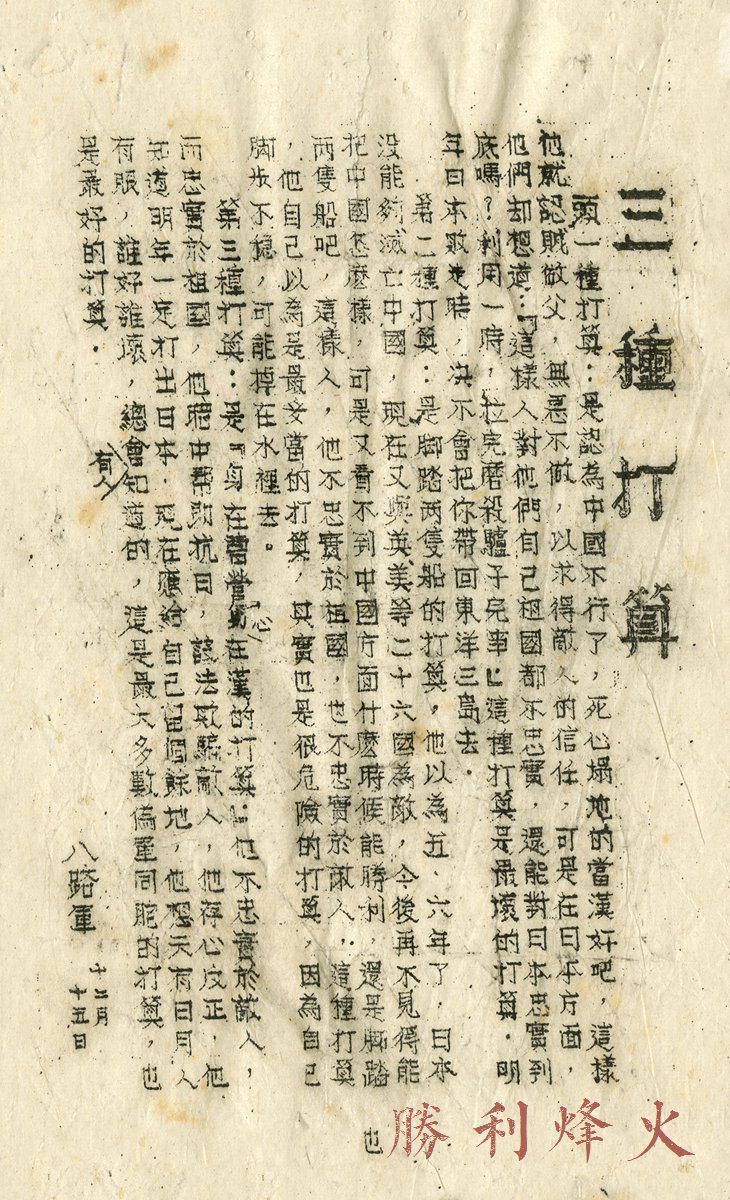 三種打算
頭一種打算：是認為中國不行了，死心塌地的當漢奸吧，這樣
他就認賊做父，無惡不做，以求得敵人的信任，可是在日本方面，
他們却想道：「這樣人對他們自己祖國都不忠實，還能對日本忠實到
底嗎？利用一時，拉完磨殺驢子完事」這種打算是最壞的打算．明
年日本敗走時，決不會把你帶回東洋三島去．
第二種打算：是脚踏两隻船的打算，他以為五、六年了，日本
没能夠滅亡中國，現在又與英美等二十六國為敵，今後再不見得能
把中國怎麽樣，可是又看不到中國方面什麽時候能勝利，還是脚踏
两隻船吧，這樣人，他不忠實於祖國，也不忠實於敵人，這種打算
，他自己以為是最妥當的打算，其實也是很危險的打算，因為自己
脚步不穩，可能掉在水裡去。
第三種打算：是「身在曹營心在漢的打算」他不忠實於敵人，
而忠實於祖國，他暗中幫助抗日，設法欺騙敵人，他存心反正，他
知道明年一定打出日本．現在應給自己留個餘地，他想天有日月人
有眼，誰好誰壞，總會有人知道的，這是最大多數偽軍同胞的打算，也
是最好的打算．
八路軍
十二月
十五日
也
勝利烽火